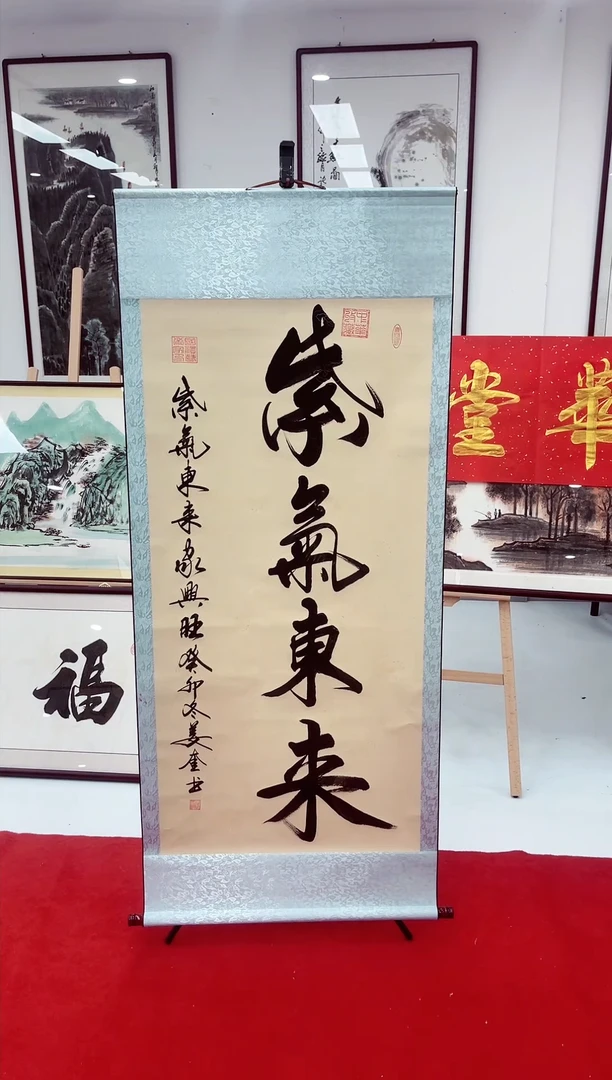 紫氣東来
紫氣東来家興旺癸卯冬姜奎书
福
華堂